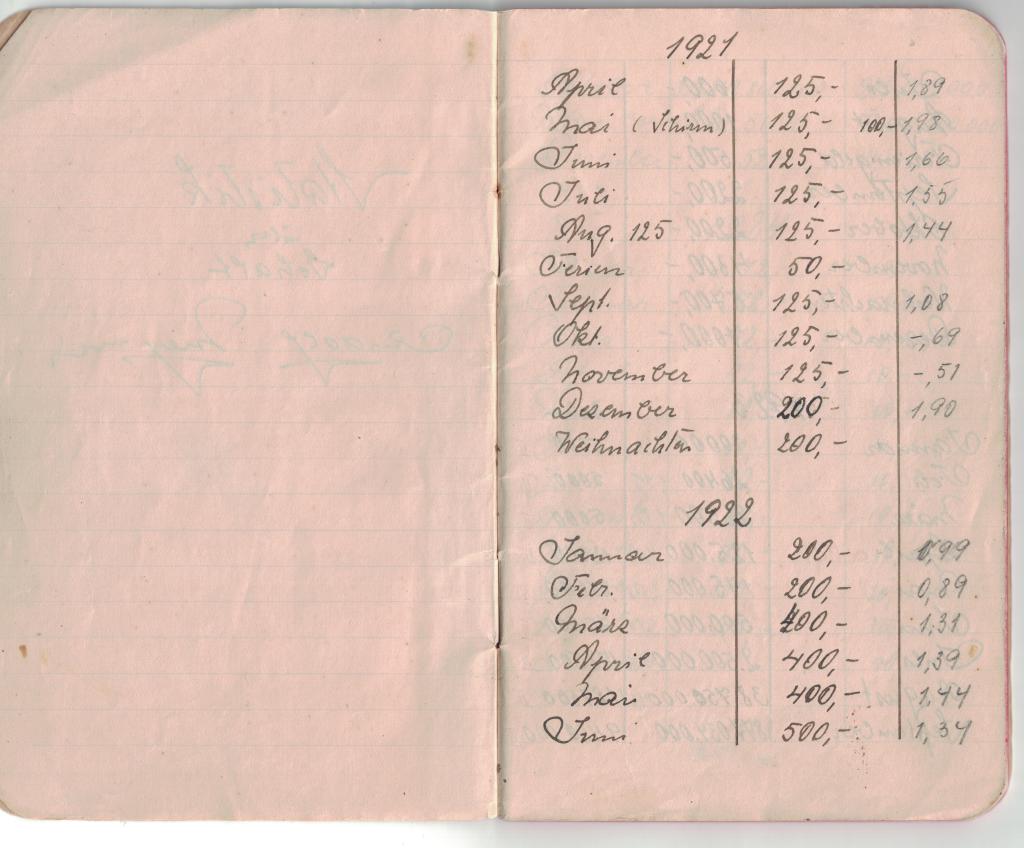 1921
April 125,- 1,89
Mai (Schirm) 125,- 100,- 1,98
Juni 125,- 1,66
Juli 125,- 1,55
Aug. 125 125,- 1,44
Ferien 50,-
Sept. 125,- 1,08
Okt. 125,- -,69
November 125,- -,51
Dezember 200,- 1,90
Weihnachten 200,-
1922
Januar 200,- 0,99
Febr. 200,- 0,89
März 400,- 1,31
April 400,- 1,39
Mai 400,- 1,44
Juni 500,- 1,34